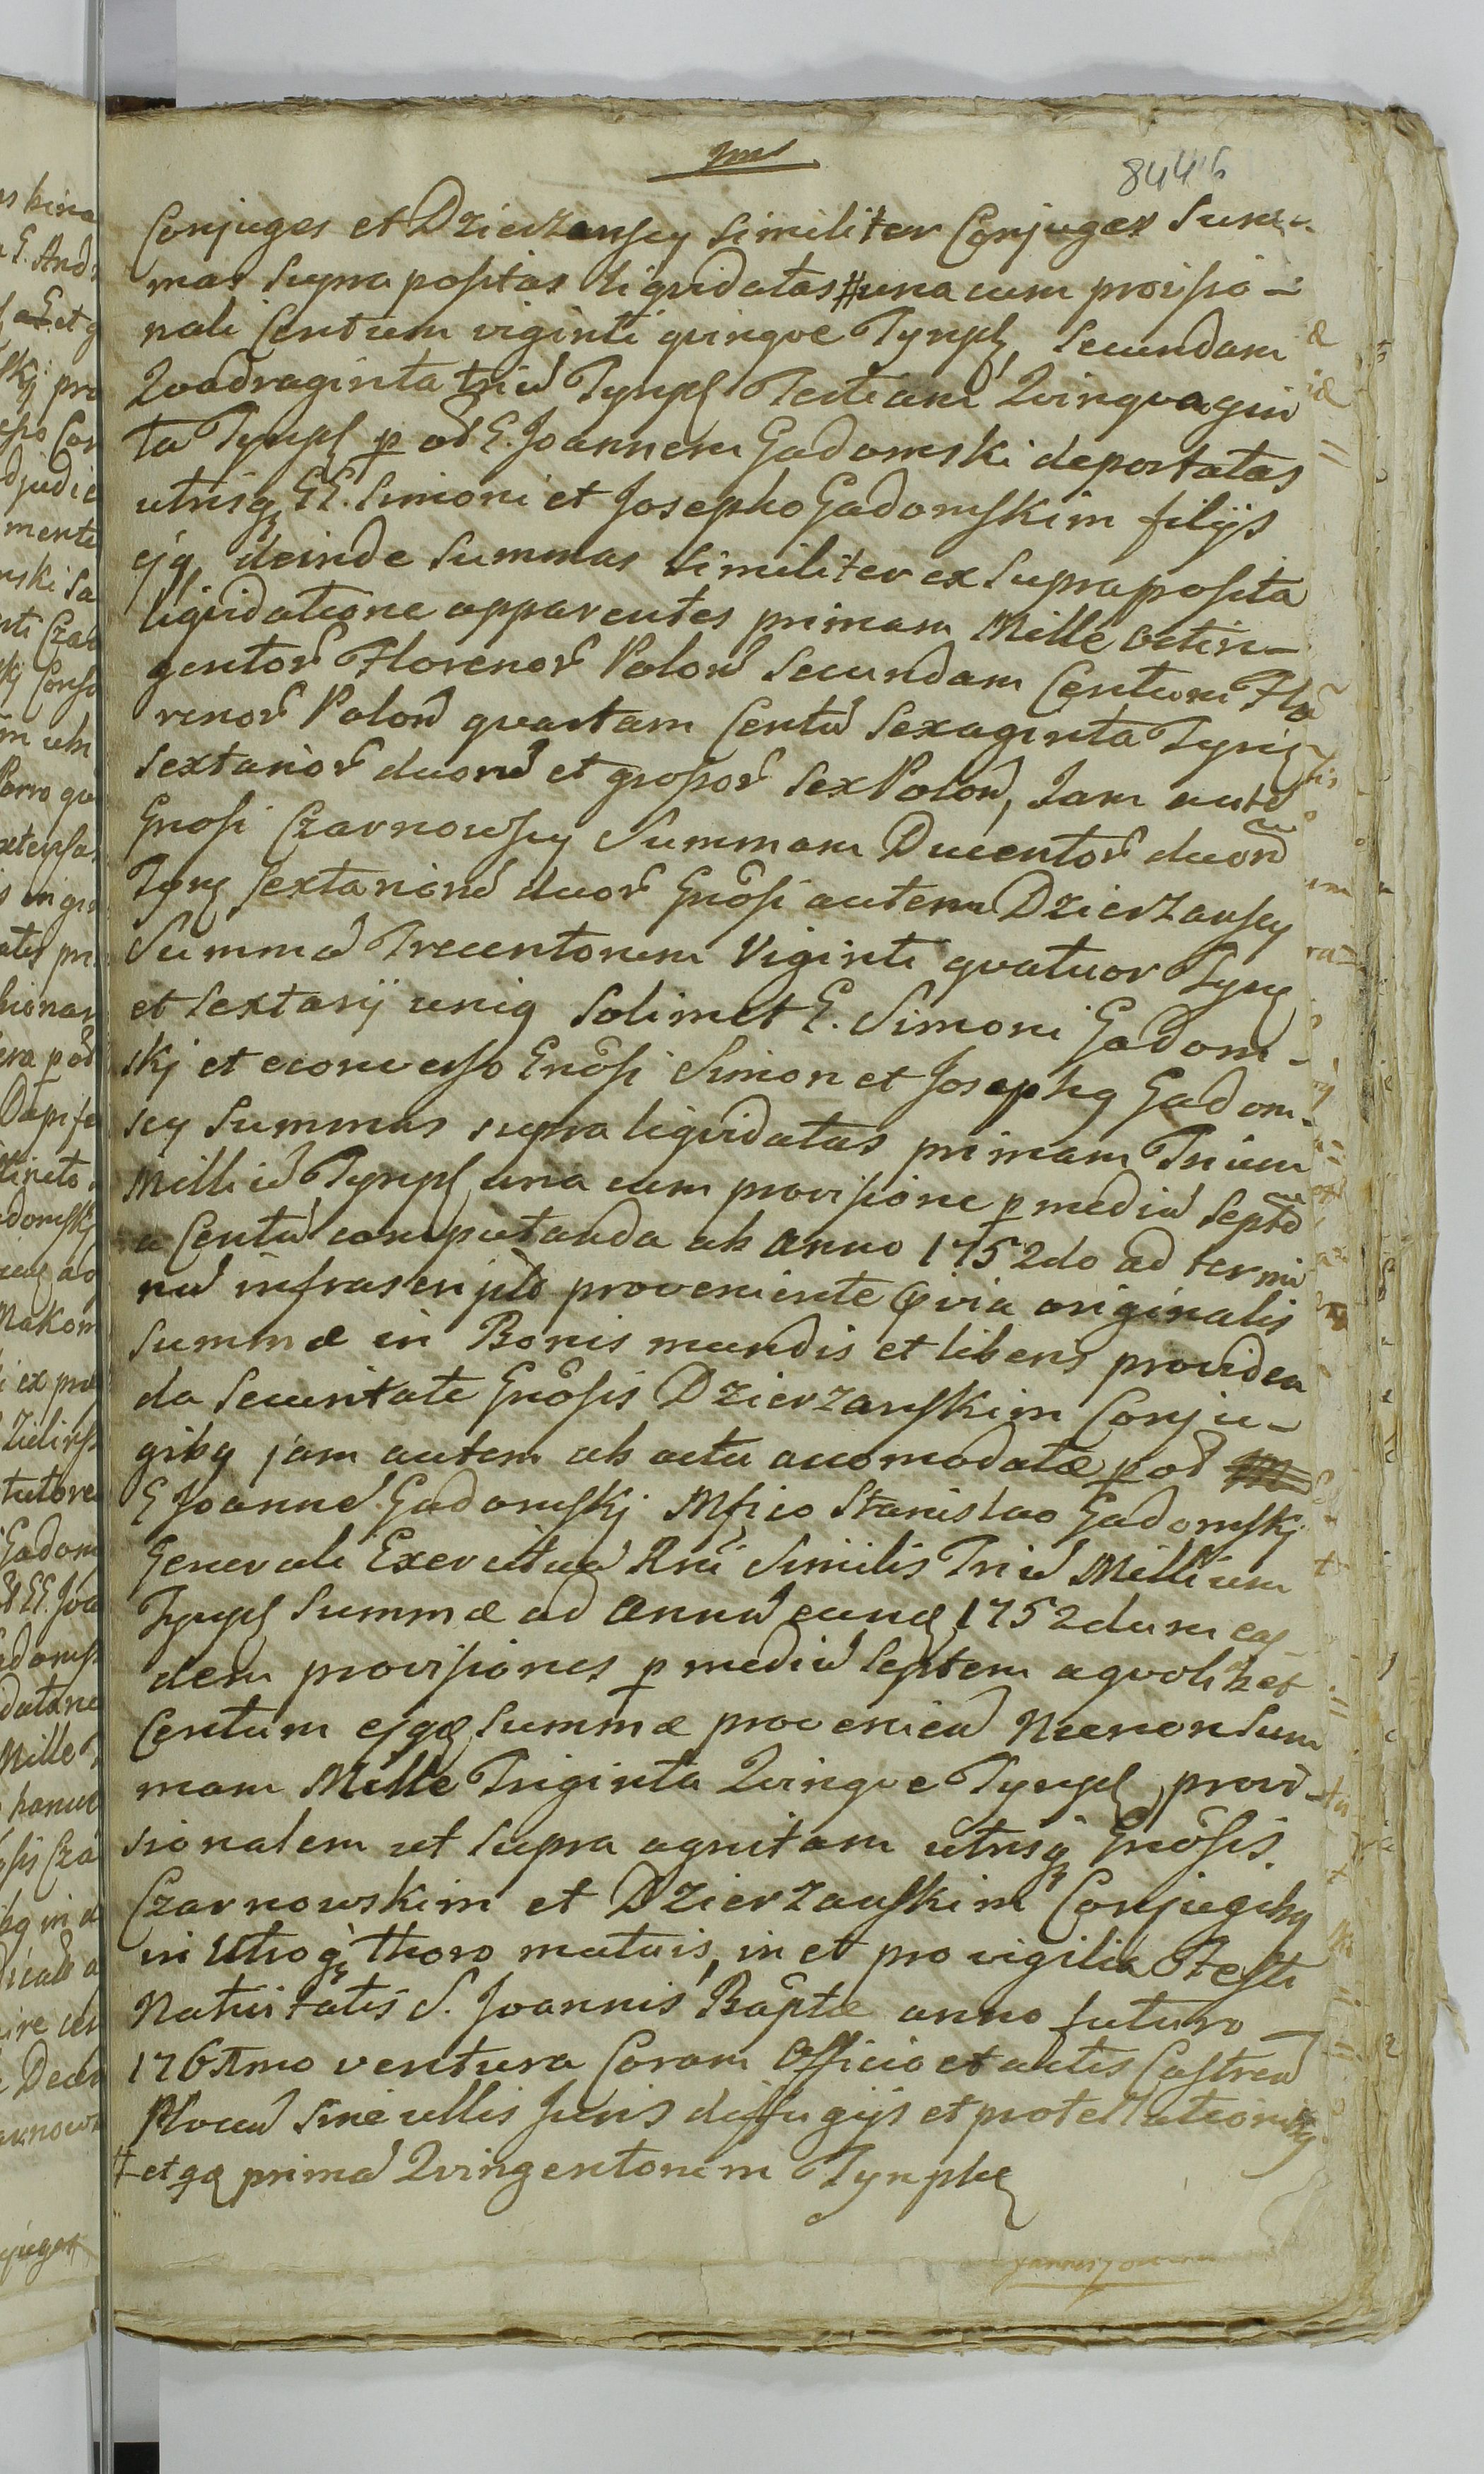 844 6
Conjuges et Dzierzanscy Similiter Conjuges Sum-
mas Supra positas liquidatas # una cum provisio-
nali Centum viginti quinque Tynph, Secundam
Quadraginta triũ Tynph Tertiam Quinquagin
ta Tynph p od E. Joannem Gadomski deportatas
utrisq EE. Simoni et Josepho Gadomskim filijs
ejq deinde Summas Similiter ex Supraposita
liquidatione apparentes primam Mille Octin-
gentor Florenor Polon Secundam Centum Flo
renor Polon quartam Centũ Sexaginta Tynq
Sextarior duorũ et grossor Sex Polon, Jam autẽ
Gnosi Czarnowscy Summam Ducentor duorũ
Tynq Sextariorũ duor Gnosi autem Dzierzanscy
Summã Trecentorum Viginti quatuor Tynq
et Sextarij uniq Solimet E. Simoni Gadom-
skj et econverso Gnosi Simon et Josephq Gadom-
scy Summas supra liquidatas primam Trium
Milliũ Tynph una cum provisione p mediũ Septẽ
a Centũ computanda ab Anno 1752do ad termi
nũ infrascriptũ proveniente Qvia originalis
Summæ in Bonis mundis et liberis providen
da Securitate Gnosis Dzierzanskim Conju-
gibq jam autem ab actu accomodatæ p od
E Joannẽ Gadomskj Mfico Stanislao Gadomskj
Generali Exercituũ Rni Similis Triũ Millium
Tynph Summæ ad Annũ eund 1752dum eas
dem provisiones p mediũ Septem a quolibet
Centum ejqd Summæ provenien Necnon Sum
mam Mille Triginta Quinque Tynph provi-
sionalem ut Supra agnitam utrisq Gnosis
Czarnowskim et Dzierzanskim Conjugibq
in Utroq thoro mutuis, in et pro vigilia Festi
Nativitatis S. Joannis Baptæ anno futuro
1761mo ventura Coram Officio et actis Castren
Plocen Sine ullis Juris diffugijs et protestationibq
# et qd primã Quingentorum Tynphq